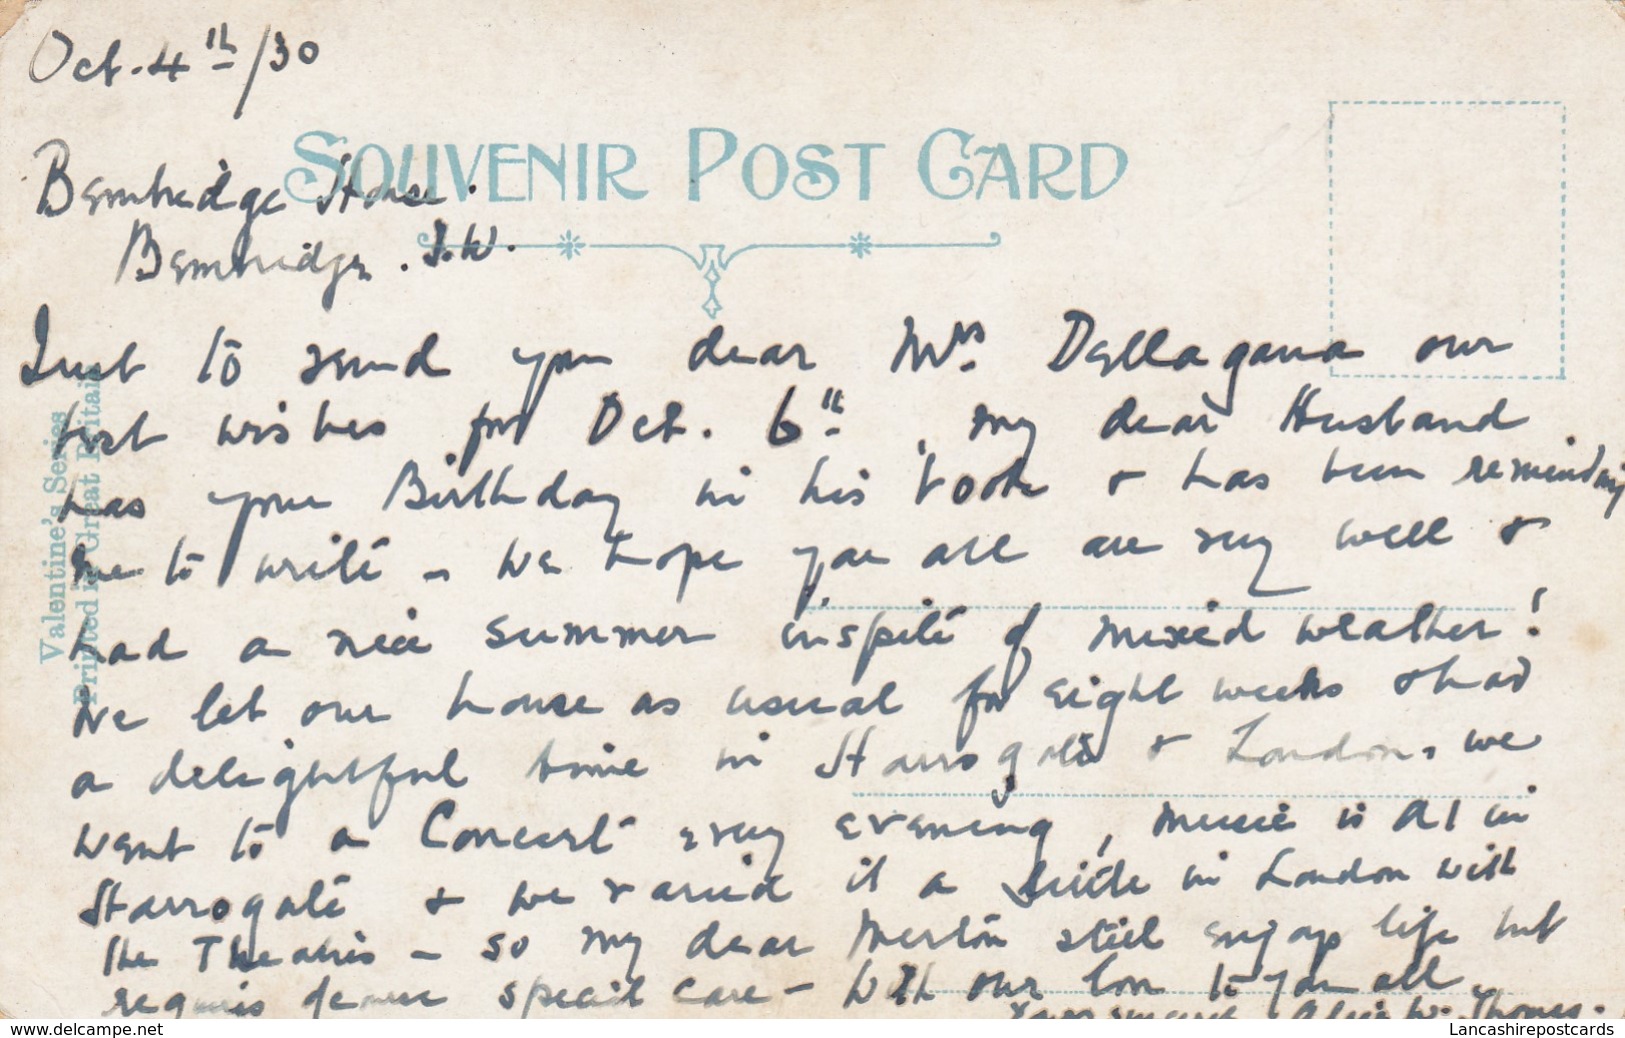 Oct. 4th/30
SOUVENIR POST CARD
Bembridge House.
Bembridge. I.W.
Just to send you dear Mrs Dellagana our
best wishes for Oct. 6th, my dear Husband
has your Birthday in his book & has been reminding
me to write – We hope you all are very well &
had a nice summer inspite of mixed weather!
We let our house as usual for eight weeks & had
a delightful time in Harrogate & London, we
went to a Concert every evening, music is A1 in
Harrogate & we varied it a little in London with
the Theatres – so my dear Merton still enjoys life but
requires special care – With our love to you all.
Yours sincerely Alice W. Thomas.
Valentine's Series
Printed in Great Britain
delcampe.net
Lancashirepostcards